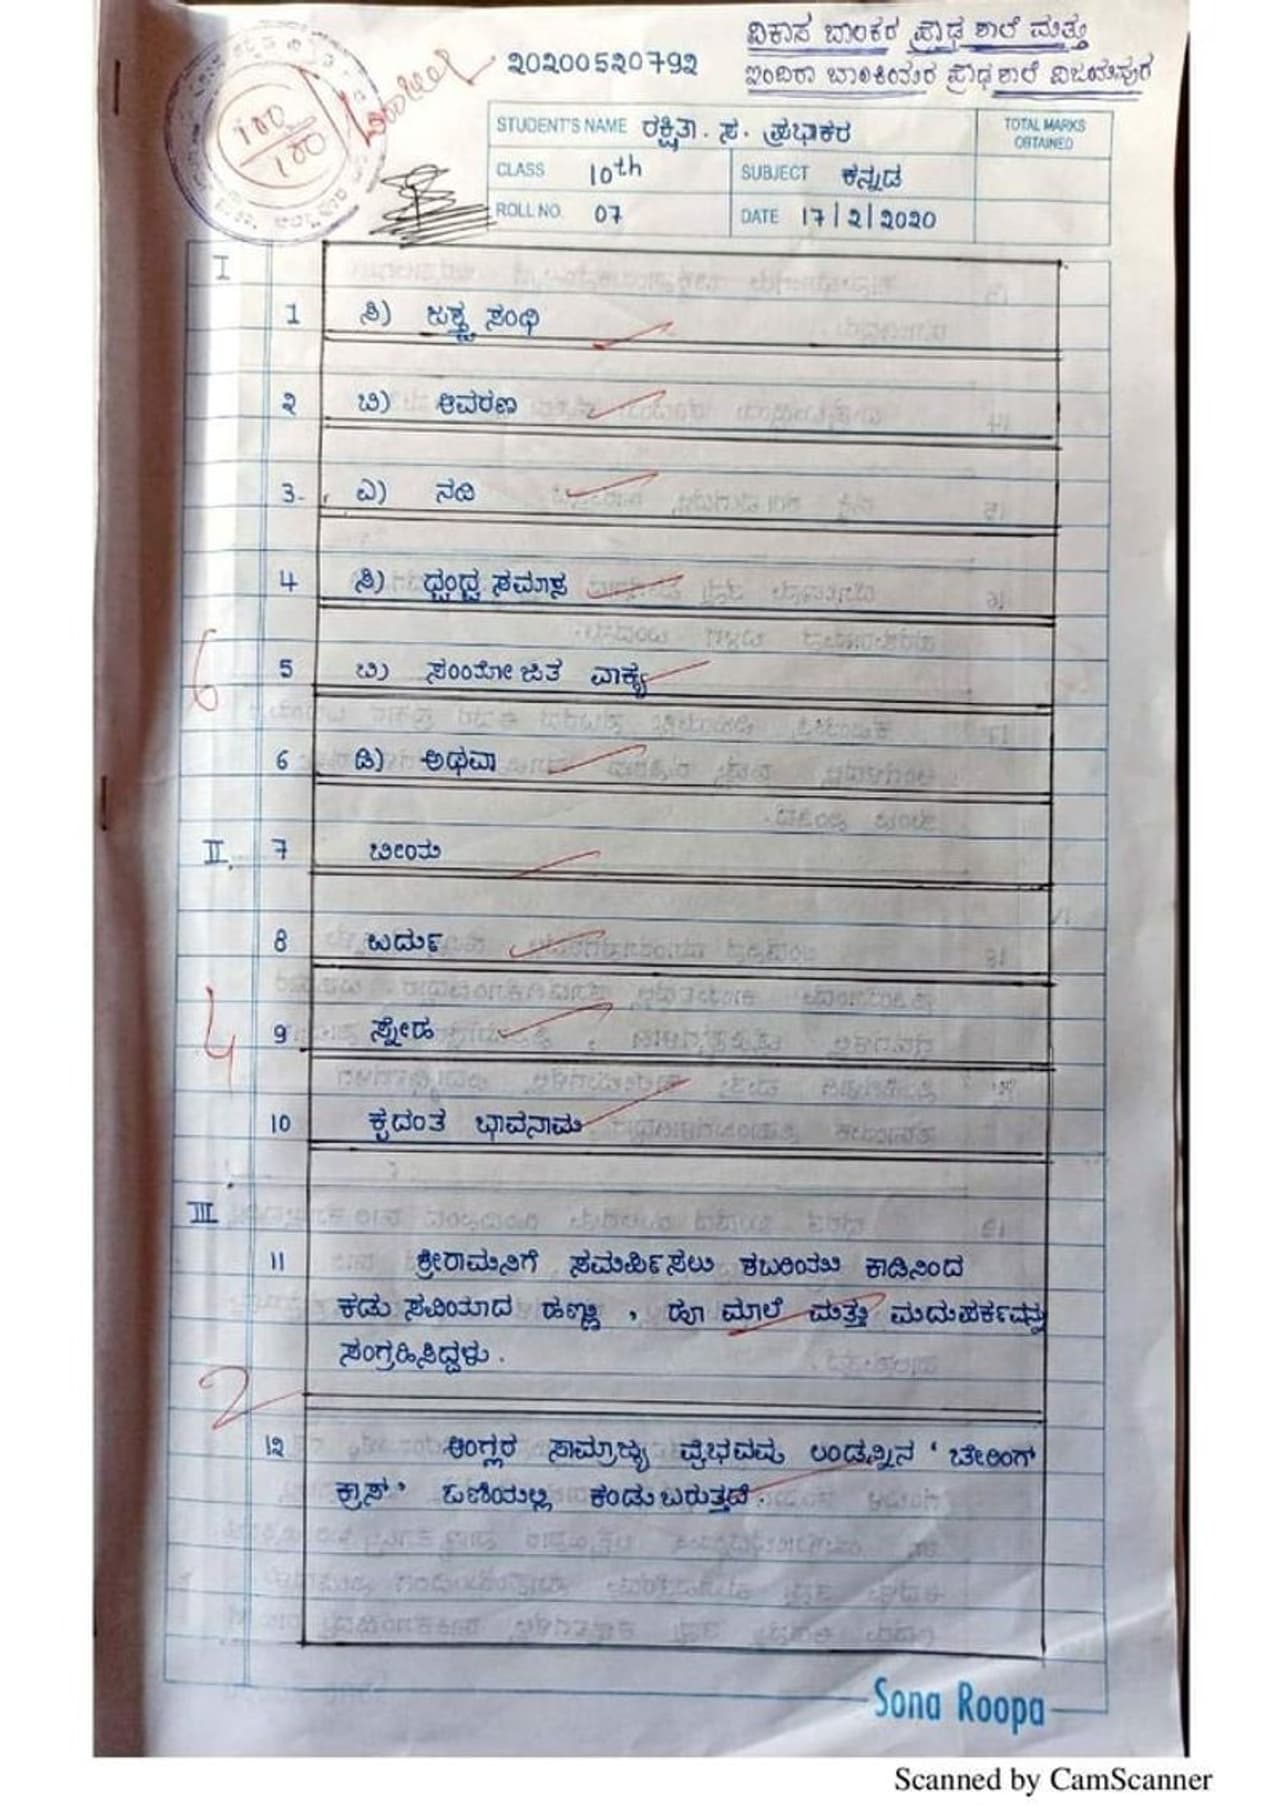 ವಿಕಾಸ ಬಾಲಕರ ಪ್ರೌಢ ಶಾಲೆ ಮತ್ತು
20200520792
ಇಂದಿರಾ ಬಾಲಕಿಯರ ಪ್ರೌಢಶಾಲೆ ವಿಜಯಪುರ
100
100
STUDENT'S NAME ರಕ್ಷಿತಾ. ಸ. ಪ್ರಭಾಕರ
TOTAL MARKS OBTAINED
CLASS 10th SUBJECT ಕನ್ನಡ
ROLL NO. 07 DATE 17/2/2020
I
1 ಸಿ) ಜಶ್ತ್ವ ಸಂಧಿ
೨ ಬಿ) ಆವರಣ
3. ಎ) ನದಿ
4 ಸಿ) ದ್ವಂದ್ವ ಸಮಾಸ
5 ಬಿ) ಸಂಯೋಜಿತ ವಾಕ್ಯ
6
6 ಡಿ) ಅಥವಾ
II. 7 ಬೀಯ
8 ಖರ್ದು
4
9 ಸ್ನೇಹ
10 ಕೃದಂತ ಭಾವನಾಮ
III
11 ಶ್ರೀರಾಮನಿಗೆ ಸಮರ್ಪಿಸಲು ಶಬರಿಯು ಕಾಡಿನಿಂದ
ಕಡು ಸವಿಯಾದ ಹಣ್ಣು , ಹೂ ಮಾಲೆ ಮತ್ತು ಮದುಪರ್ಕವನ್ನು
ಸಂಗ್ರಹಿಸಿದ್ದಳು.
2
1೨ ಆಂಗ್ಲರ ಸಾಮ್ರಾಜ್ಯ ವೈಭವವು ಲಂಡನ್ನಿನ ‘ ಚೇರಿಂಗ್
ಕ್ರಾಸ್’ ಓಣಿಯಲ್ಲಿ ಕಂಡು ಬರುತ್ತದೆ.
Sona Roopa
Scanned by CamScanner